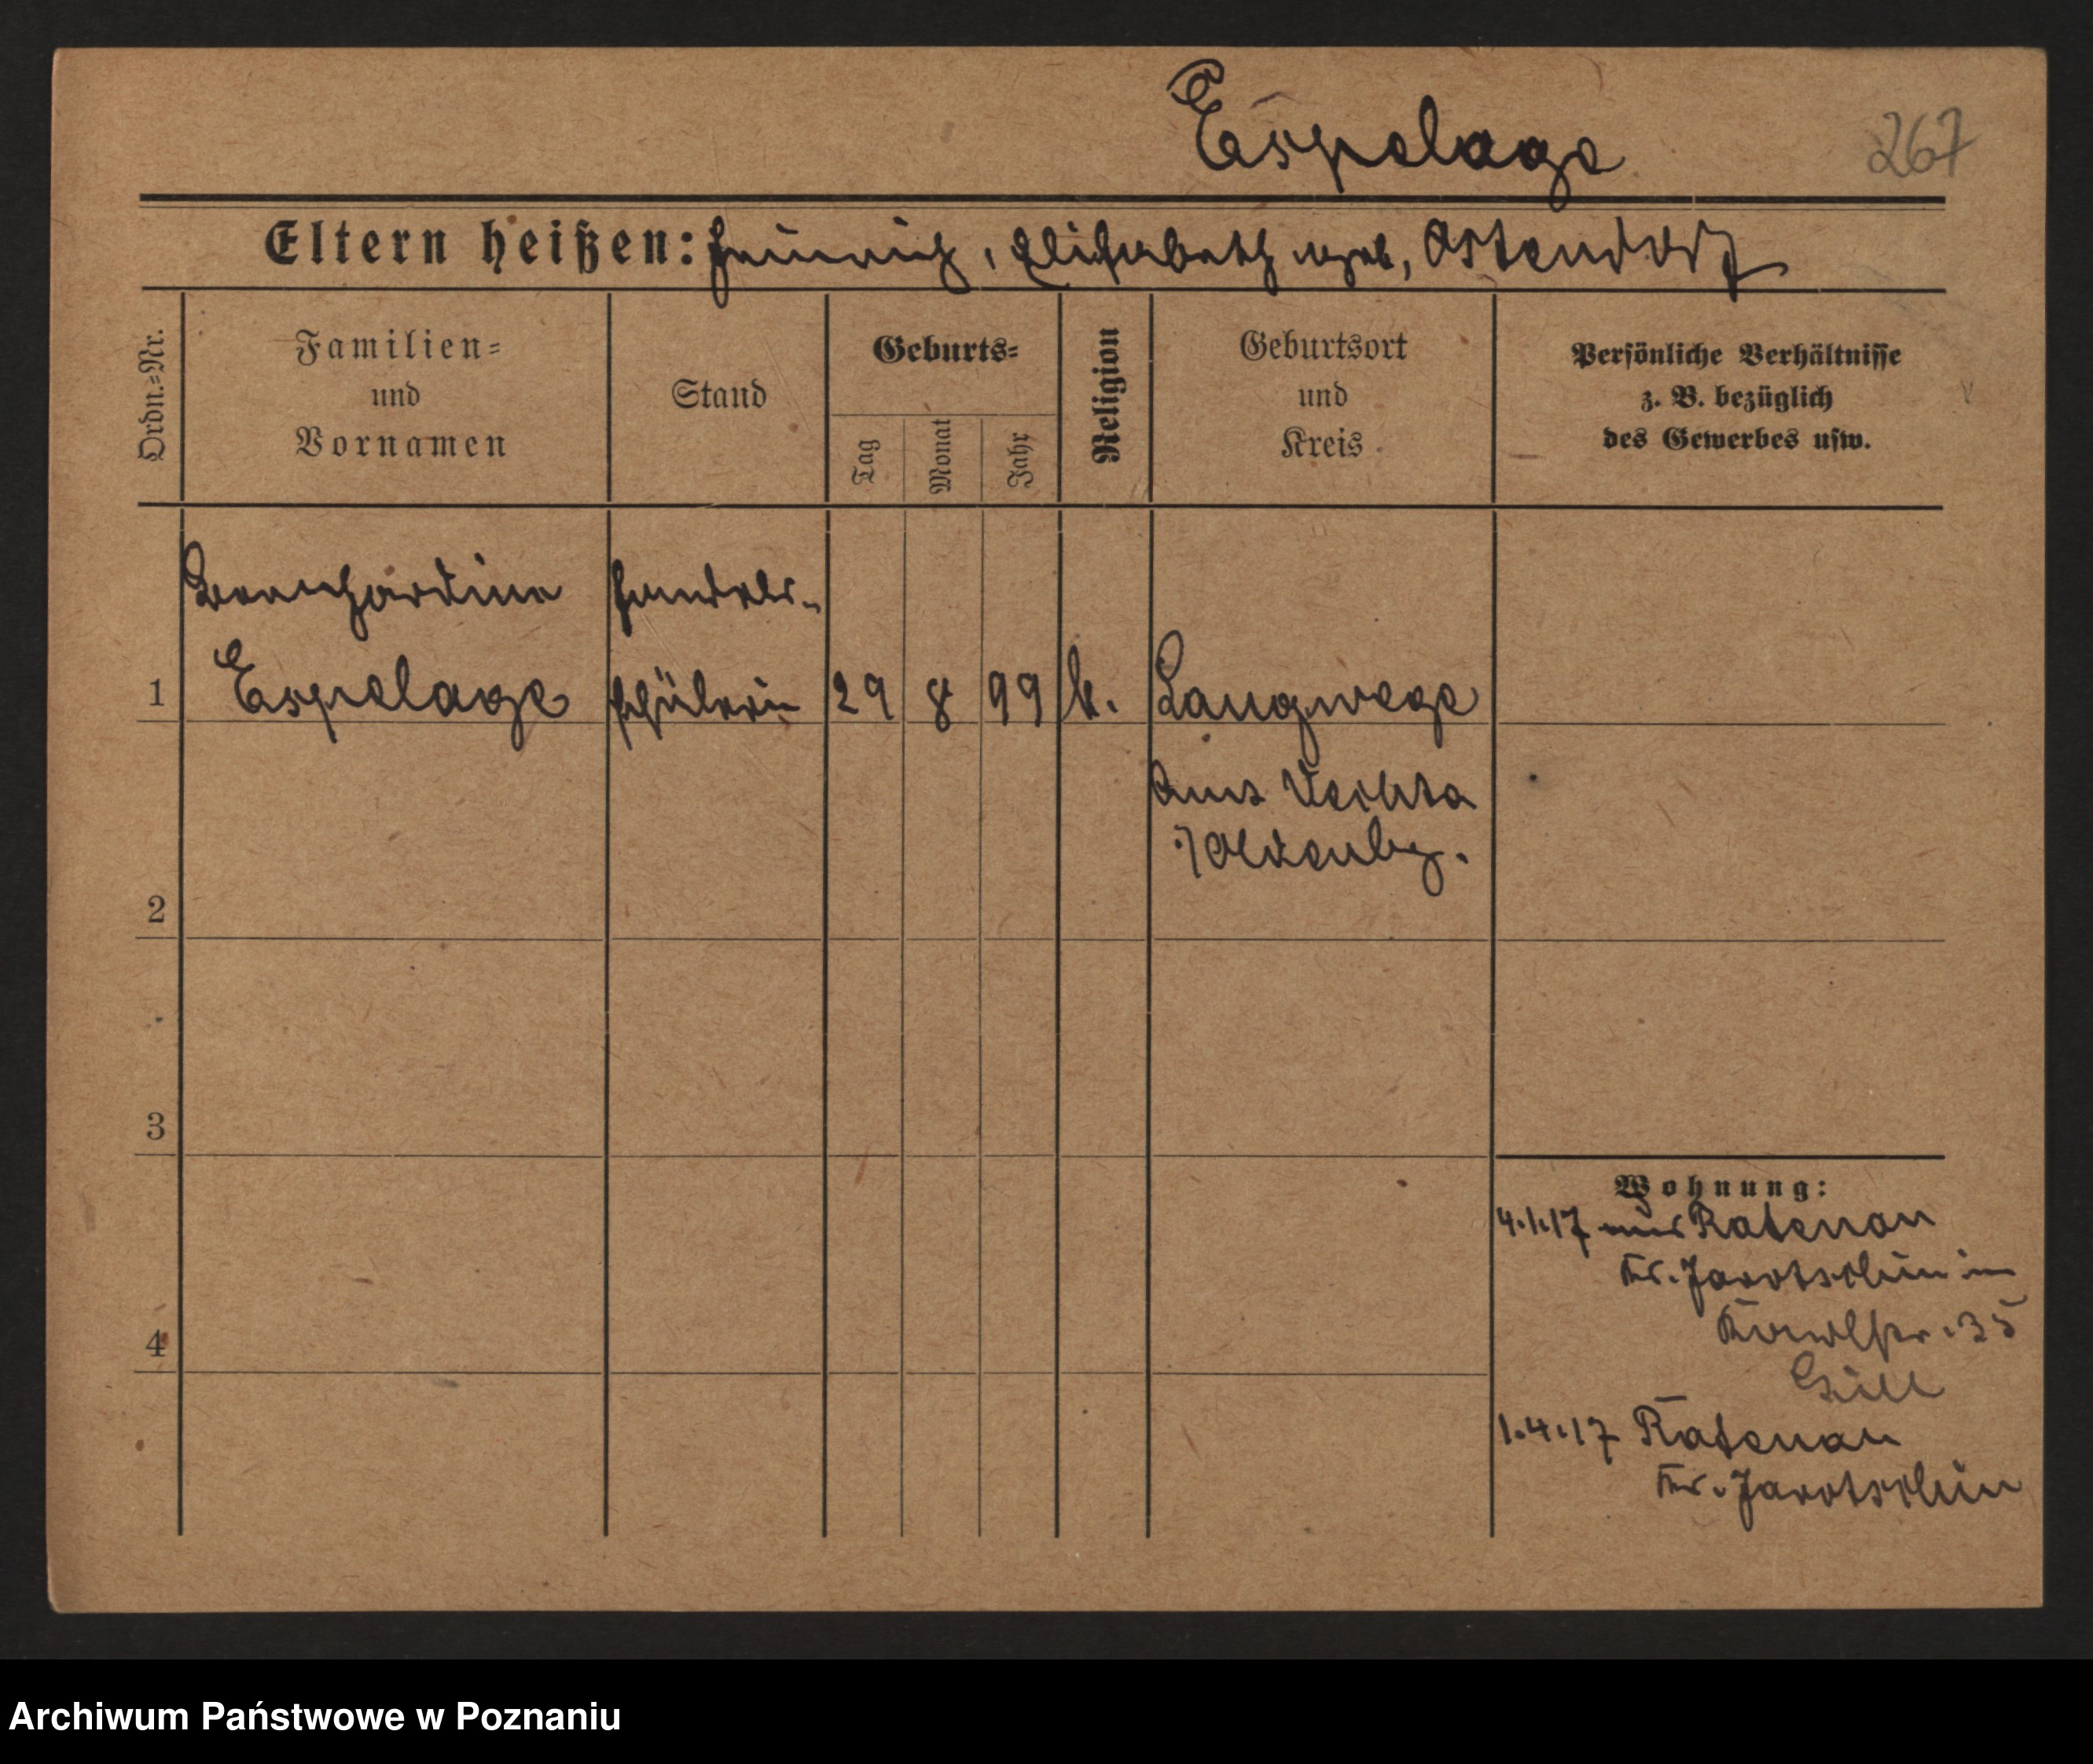 Espelage
267
Eltern heißen: Heinrich, Elisabeth geb, Ostendorf
Ordn.=Nr.
Familien=
und
Vornamen
Stand
Geburts=
Tag
Monat
Jahr
Religion
Geburtsort
und
Kreis
Persönliche Verhältnisse
z. B. bezüglich
des Gewerbes usw.
Bernhardine Handels-
1 Espelage schülerin 29 8 99 k. Langwege
Amt Vechta
i/Oldenbg.
2
3
4
Wohnung:
4.1.17 aus Ratenau
Kr. Jarotschin in
35
1.4.17 Ratenau
Kr. Jarotschin
Archiwum Państwowe w Poznaniu